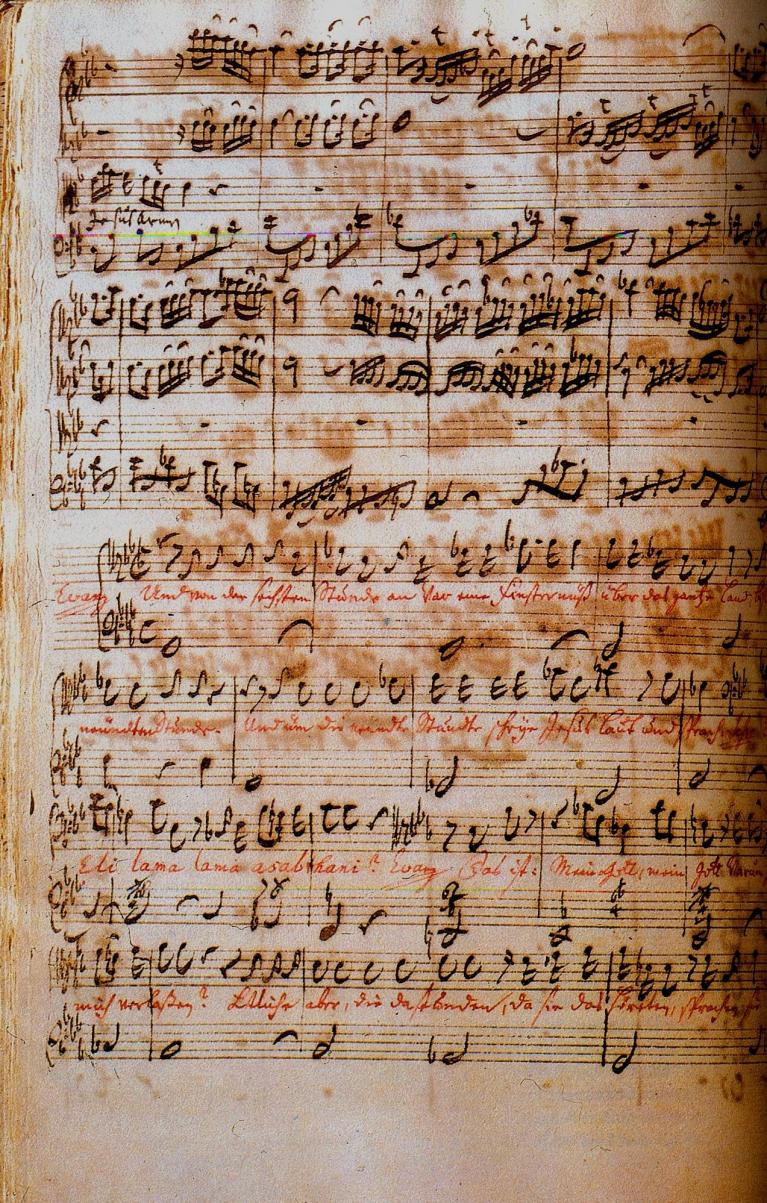 Jesus Armen
Evang Und von der sechsten Stunde an war eine Finsterniß über das gantze Land
neundten Stunde. Und um die neundte Stunde schrye Jesus laut und sprach
Eli lama lama asabthani? Evang Das ist: Mein Gott, mein Gott warum
mich verlaßen? Etliche aber, die da stunden, da sie das höreten, sprachen